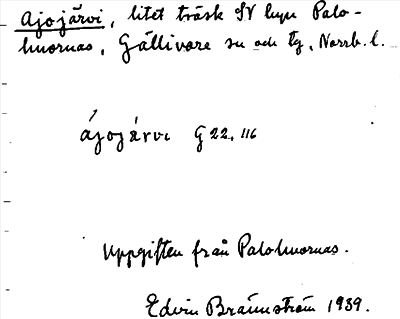 Ajojärvi, litet träsk SV byn Palo-
huornas, Gällivare sn och tg, Norrb. l.
ájojárvi G 22, 116
Uppgiften från Palohuornas.
Edvin Brännström 1939.